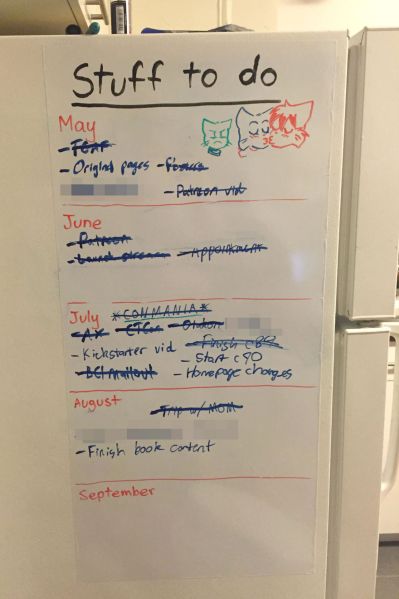 Stuff to do
May
- TCAF
- Original pages - Posters
- Patreon vid
June
- Patreon
- Launch stream - Appointment
July *CONMANIA*
- AX - CTCon - Otakon
- Kickstarter vid - Finish c89
- Start c90
- BCI mailout - Homepage changes
August
- Trip w/ MOM
- Finish book content
September